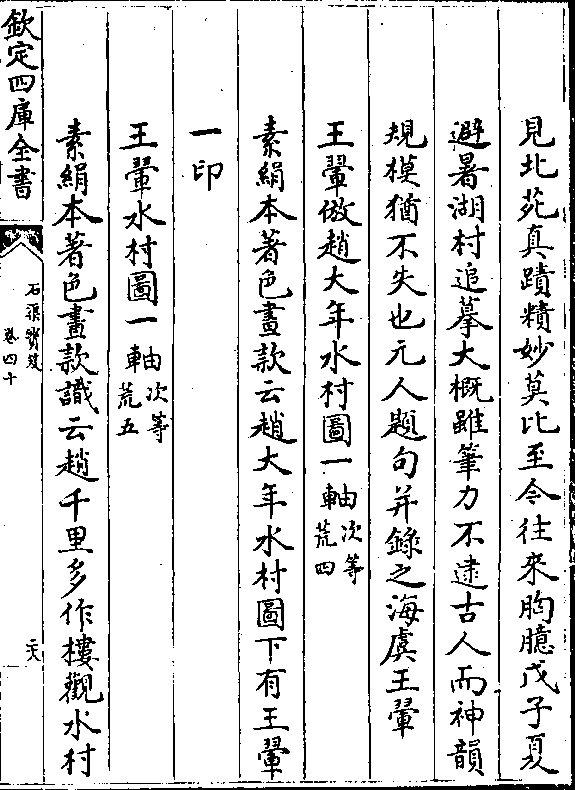 見北苑真蹟精妙莫比至今往來胸臆戊子夏
避暑湖村追摹大概雖筆力不逮古人而神韻
規模猶不失也元人題句并錄之海虞王翬
王翬倣趙大年水村圖一軸次等荒四
素絹本著色畫款云趙大年水村圖下有王翬
一印
王翬水村圖一軸次等荒五
素絹本著色畫款識云趙千里多作樓觀水村
欽定四庫全書
石渠寶笈
卷四十
六